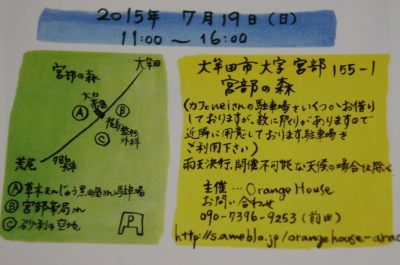 2015年 7月19日(日)
11:00〜16:00
宮部の森
大牟田
荒尾
整形
外科
A
B
C
Ⓐ草木まんじゅう黒の屋さん駐車場
Ⓑ宮部薬局さん
Ⓒ砂利の空地
P
大牟田市大字宮部155-1
宮部の森
(カフェneiさんの駐車場をいくつかお借り
しておりますが、数に限りがありますので
近隣に用意しております駐車場を
ご利用下さい)
雨天決行、開催不可能な天候の場合は除く
主催…Orange House
お問い合わせ
090-7396-9253(前田)
http://s.ameblo.jp/orangehouse-arao